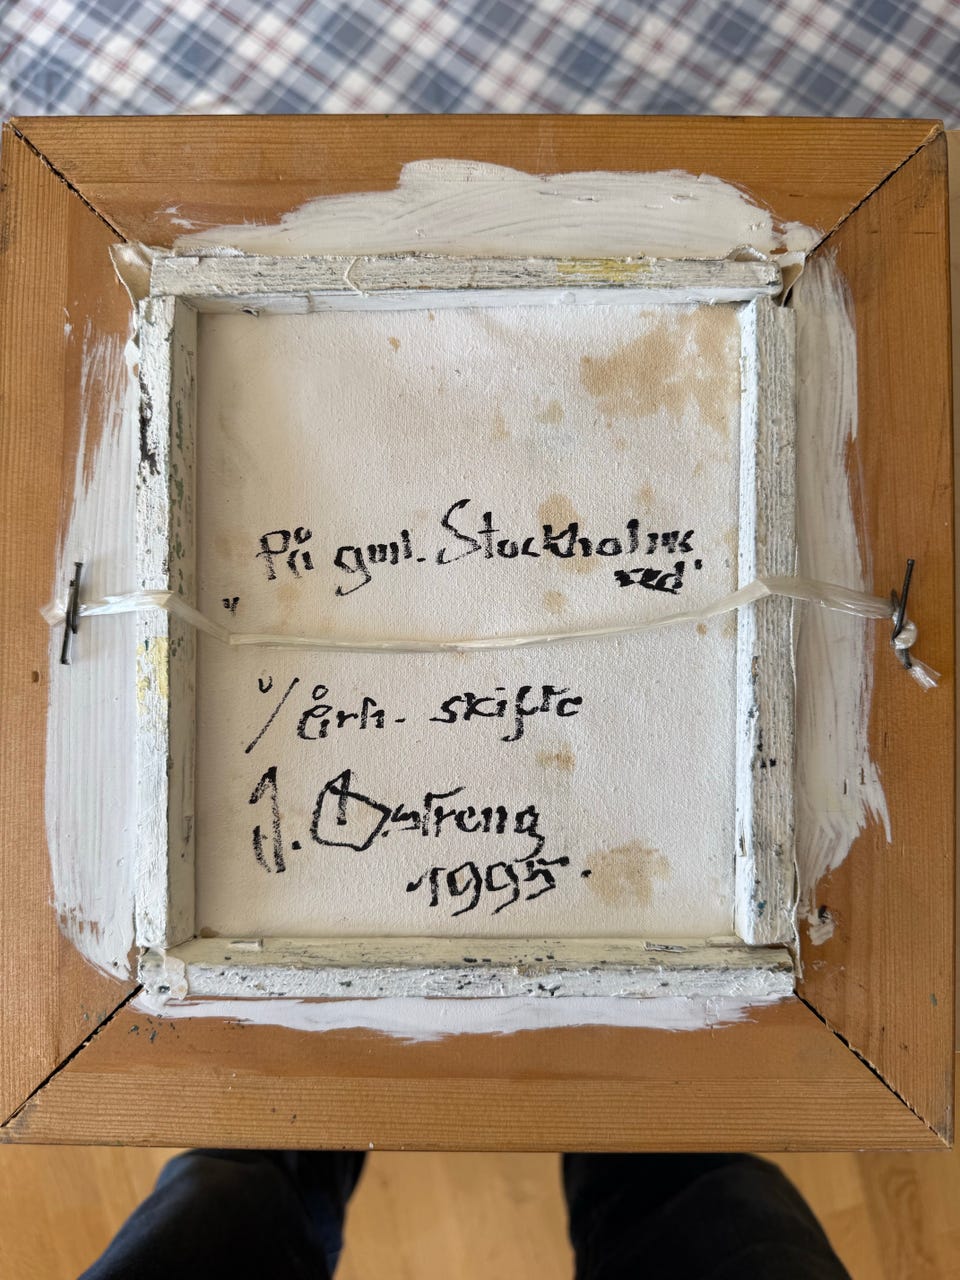 På gml. Stockholms
red"
"
v/ årh. skifte
J. Østreng
1995.